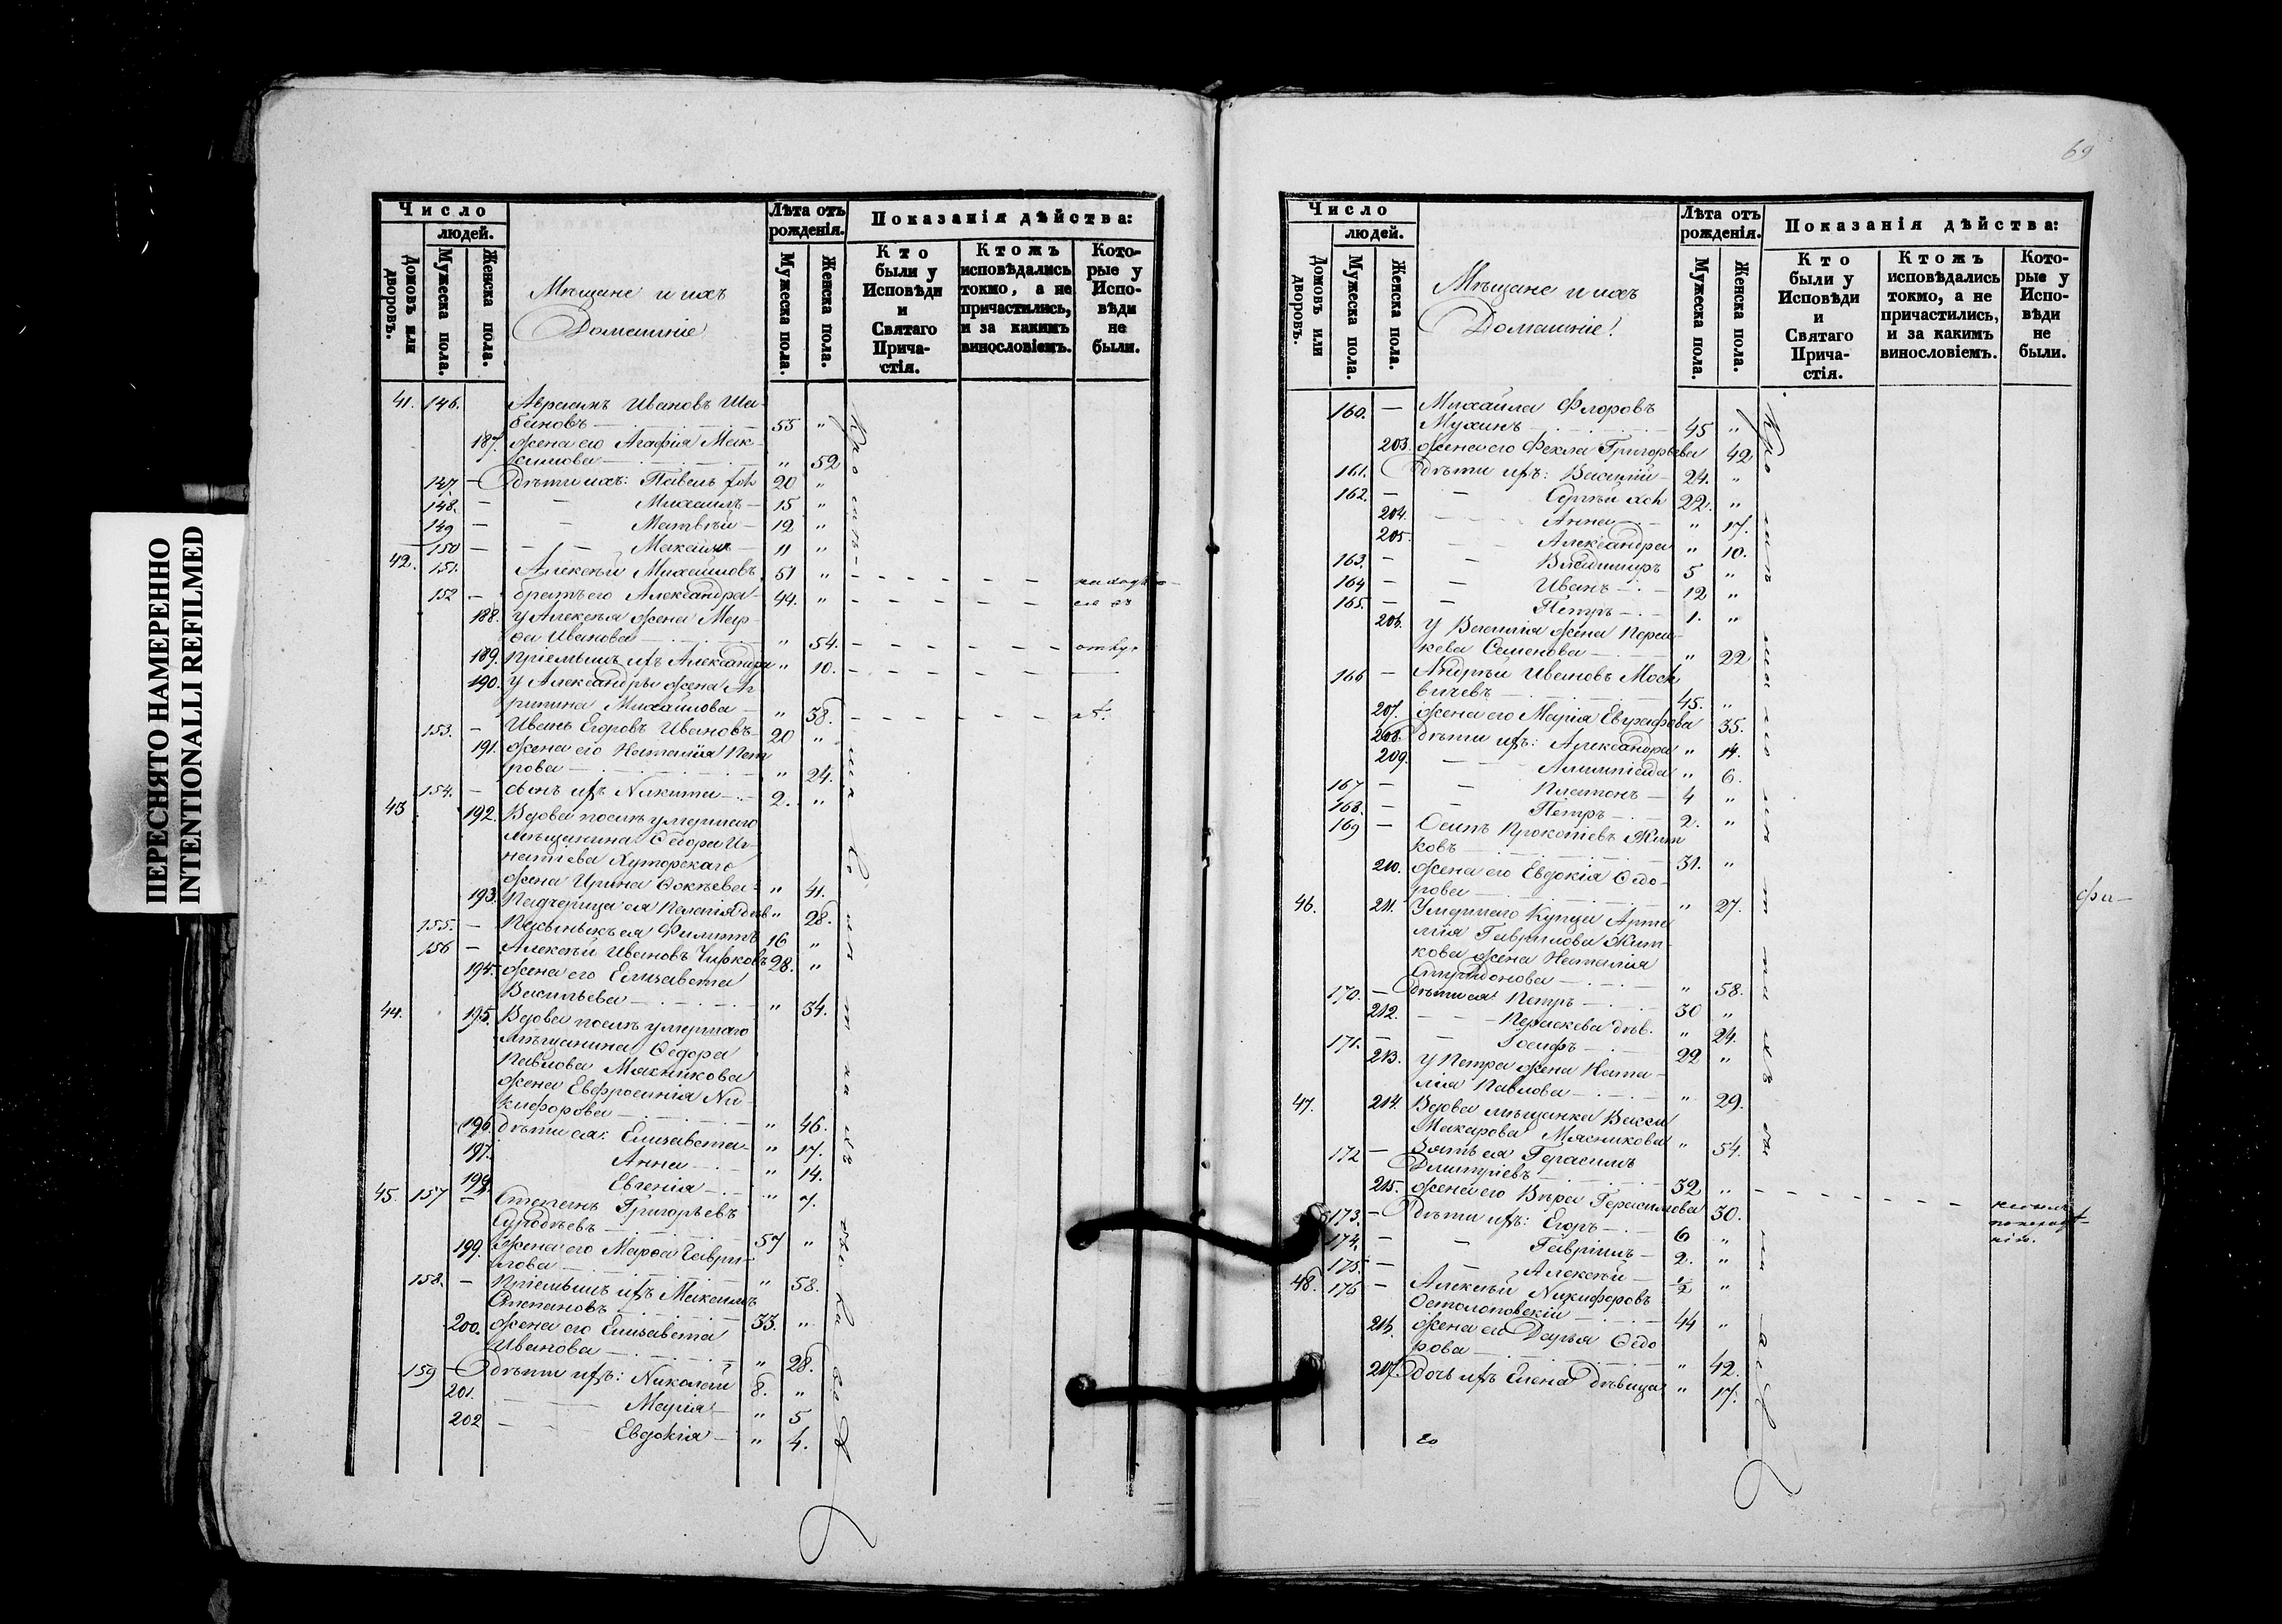 ПЕРЕСНЯТО НАМЕРЕННО
INTENTIONALLI REFILMED
Число
людей.
Домовъ или дворовъ.
Мужеска пола.
Женска пола.
Мѣщане и ихъ
Домашніе
Лѣта отъ рожденія.
Мужеска пола.
Женска пола.
Показанія дѣйства:
Кто были у Исповѣди и Святаго Прича-стія.
Ктожъ исповѣдались токмо, а не причастились, и за какимъ винословіемъ.
Кото-рые у Испо-вѣди не были.
41. 146. Авраамъ Ивановъ Ша-
бановъ 55 "
187. жена его Агафія Мак-
симова " 52
147 — дѣти ихъ: Павелъ 20 "
148. — — Михаилъ — 15 "
149 — — Матвѣй — 12 "
150 — — Максимъ — 11 "
42. 151. Алексѣй Михайловъ 51 "
152 — братъ его Александръ 44. "
188. у Алексѣя жена Мар-
ѳа Иванова " 54.
189. Пріемышъ ихъ Александра " 10.
190. у Александра жена Аг-
рипина Михайлова — " 38.
153. — Иванъ Егоровъ Ивановъ 20 "
191. жена его Наталія Пет
рова " 24.
154. — сынъ ихъ Никита 2. "
43 192. Вдова послѣ умершаго
мѣщанина Ѳедора Иг-
натіева Хуторскаго
жена Ирина Ѳокѣева " 41.
193. Падчерица ея Пелагія дѣв " 28.
155. — Пасынокъ ея Филиппъ 16 "
156 — Алексѣй Ивановъ Чирковъ 28. "
194. жена его Елизавета
Васильева " 34.
44. 195. Вдова послѣ умершаго
мѣщанина Ѳедора
Павлова Мясникова
жена Евфросинія Ни-
кифорова " 46.
196. дѣти ея: Елизавета " 17.
197. Анна " 14.
198. Евгенія " 7.
45. 157 — Степанъ Григорьевъ
57 "
199. жена его Марѳа Гаври-
лова " 58.
158. — Пріемышъ ихъ Максимъ
Степановъ 33. "
200. жена его Елизавета
Иванова " 28.
159 — дѣти ихъ: Николай 8. "
201. Марія " 5
202 Евдокія " 4.
69
Число
людей.
Домовъ или дворовъ.
Мужеска пола.
Женска пола.
Мѣщане и ихъ
Домашніе
Лѣта отъ рожденія.
Мужеска пола.
Женска пола.
Показанія дѣйства:
Кто были у Исповѣди и Святаго Прича-стія.
Ктожъ исповѣдались токмо, а не причастились, и за какимъ винословіемъ.
Кото-рые у Испо-вѣди не были.
160. — Михайла Флоровъ
Мухинъ 45 "
203. жена его Фекла Григорьева 42
161. дѣти ихъ: Василій 24. "
162. — — Сергѣй хол 22. "
204. Анна " 17.
205. Александра " 10.
163. — — Владимиръ 5 "
164 — — Иванъ 12 "
165. — — Петръ 1. "
206. у Василія жена Парас-
кева Семенова " 22
166 — Андрей Ивановъ Моск
вичевъ 45. "
207. жена его Марія Евграфова 35.
208. дѣти ихъ: Александра " 14.
209. Алимпіада " 6.
167 — — Платонъ 4 "
168. — — Петръ 2. "
169 — Осипъ Прокопіевъ Жит
ковъ 31. "
210. жена его Евдокія Ѳедо-
рова " 27.
46. 211. Умершаго Купца Арте
мія Гаврилова Жит-
кова жена Наталія
Спиридонова " 58.
170. — дѣти ея Петръ 30 "
212. Параскева дѣв. " 24.
171. — — Іосифъ 22 "
213. у Петра жена Ната-
лія Павлова " 29.
47. 214. Вдова мѣщанка Васса
Макарова Мясникова " 54.
172 — Зять ея Герасимъ
Дмитріевъ 32 "
215. жена его Вѣра Герасимова 30.
173. — дѣти ихъ: Егоръ 6 "
174. — — Гавріилъ 2. "
175. — — Алексѣй ½ "
48. 176 — Алексѣй Никифоровъ
Остолоповскій 44 "
216. жена его Дарья Ѳедо
рова " 42.
217. дочь ихъ Елена дѣвица " 17.